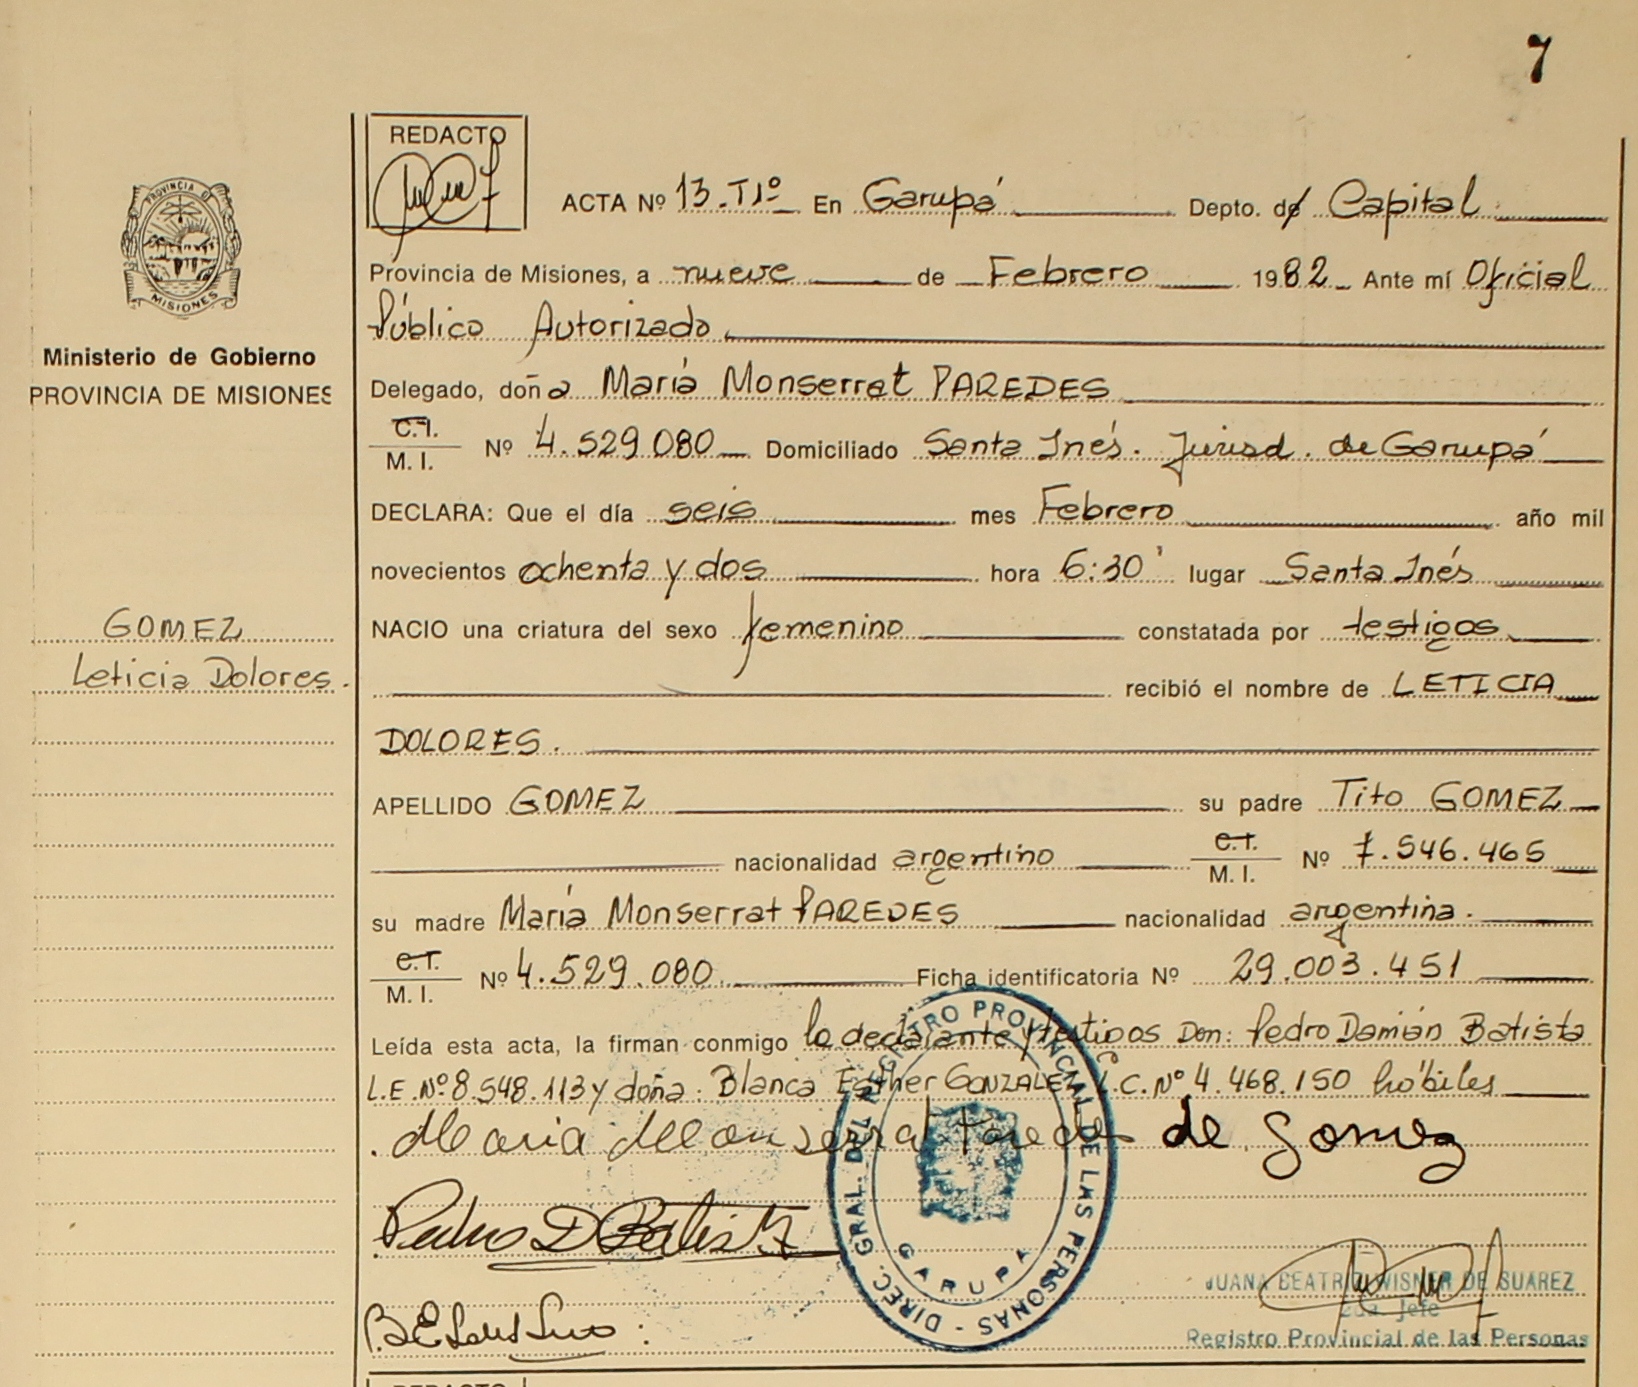 7
REDACTO
ACTA Nº 13.TIº En Garupá Depto. de Capital
PROVINCIA DE
MISIONES
Provincia de Misiones, a nueve de Febrero 1982 Ante mí Oficial
Público Autorizado
Ministerio de Gobierno
PROVINCIA DE MISIONES
Delegado, doña María Monserrat PAREDES
C.I.
M. I. Nº 4.529.080 Domiciliado Santa Inés. Jurisd. de Garupá
DECLARA: Que el día seis mes Febrero año mil
novecientos ochenta y dos hora 6:30' lugar Santa Inés
GOMEZ
Leticia Dolores.
NACIO una criatura del sexo femenino constatada por testigos
recibió el nombre de LETICIA
DOLORES.
APELLIDO GOMEZ su padre Tito GOMEZ
nacionalidad argentino C.I. M. I. Nº 7.546.465
su madre María Monserrat PAREDES nacionalidad argentina.
C.I.
M. I. Nº 4.529.080 Ficha identificatoria Nº 29.003.451
Leída esta acta, la firman conmigo la declarante y testigos Don: Pedro Damián Batista
L.E. Nº 8.548.113 y doña: Blanca Esther GONZALEZ L.C. Nº 4.468.150 hábiles
Maria Monserrat Paredes de Gomez
Pedro D Batista
DIREC. GRAL. DEL REGISTRO PROVINCIAL DE LAS PERSONAS -
GARUPA
JUANA BEATRIZ WISNER DE SUAREZ
Jefe
Registro Provincial de las Personas
REDACTO